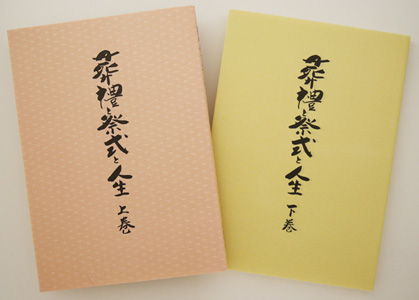 葬禮と祭式と人生
上巻
葬禮と祭式と人生
下巻